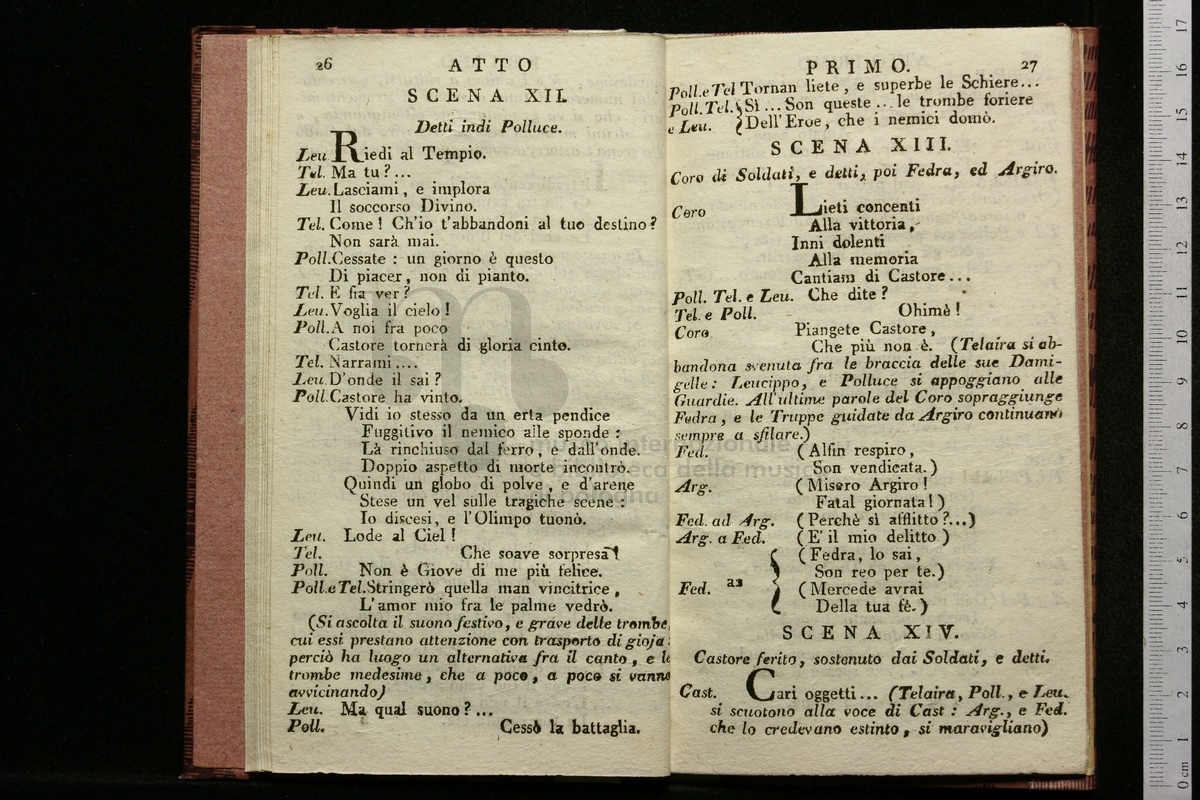 26 ATTO
SCENA XII.
Detti indi Polluce.
Leu Riedi al Tempio.
Tel. Ma tu?...
Leu. Lasciami, e implora
Il soccorso Divino.
Tel. Come! Ch'io t'abbandoni al tuo destino?
Non sarà mai.
Poll. Cessate: un giorno è questo
Di piacer, non di pianto.
Tel. E fia ver?
Leu. Voglia il cielo!
Poll. A noi fra poco
Castore tornerà di gloria cinto.
Tel. Narrami....
Leu. D'onde il sai?
Poll. Castore ha vinto.
Vidi io stesso da un erta pendice
Fuggitivo il nemico alle sponde:
Là rinchiuso dal ferro, e dall'onde.
Doppio aspetto di morte incontrò.
Quindi un globo di polve, e d'arene
Stese un vel sulle tragiche scene:
Io discesi, e l'Olimpo tuonò.
Leu. Lode al Ciel!
Tel. Che soave sorpresa!
Poll. Non è Giove di me più felice.
Poll. e Tel. Stringerò quella man vincitrice,
L'amor mio fra le palme vedrò.
(Si ascolta il suono festivo, e grave delle trombe,
cui essi prestano attenzione con trasporto di gioja:
perciò ha luogo un alternativa fra il canto, e le
trombe medesime, che a poco, a poco si vanno
avvicinando)
Leu. Ma qual suono?...
Poll. Cessò la battaglia.
PRIMO. 27
Poll. e Tel Tornan liete, e superbe le Schiere...
Poll. Tel. Sì... Son queste... le trombe foriere
e Leu. Dell'Eroe, che i nemici domò.
SCENA XIII.
Coro di Soldati, e detti, poi Fedra, ed Argiro.
Coro Lieti concenti
Alla vittoria,
Inni dolenti
Alla memoria
Cantiam di Castore...
Poll. Tel. e Leu. Che dite?
Tel. e Poll. Ohimè!
Coro Piangete Castore,
Che più non è. (Telaira si ab-
bandona svenuta fra le braccia delle sue Dami-
gelle: Leucippo, e Polluce si appoggiano alle
Guardie. All'ultime parole del Coro sopraggiunge
Fedra, e le Truppe guidate da Argiro continuano
sempre a sfilare.)
Fed. (Alfin respiro,
Son vendicata.)
Arg. (Misero Argiro!
Fatal giornata!)
Fed. ad Arg. (Perchè sì afflitto?...)
Arg. a Fed. (E' il mio delitto)
(Fedra, lo sai,
Son reo per te.)
Fed. a2 (Mercede avrai
Della tua fè.)
SCENA XIV.
Castore ferito, sostenuto dai Soldati, e detti.
Cast. Cari oggetti... (Telaira, Poll., e Leu.
si scuotono alla voce di Cast: Arg., e Fed.
che lo credevano estinto, si maravigliano)
museo internazionale
e biblioteca della musica
di bologna
0 cm 1 2 3 4 5 6 7 8 9 10 11 12 13 14 15 16 17